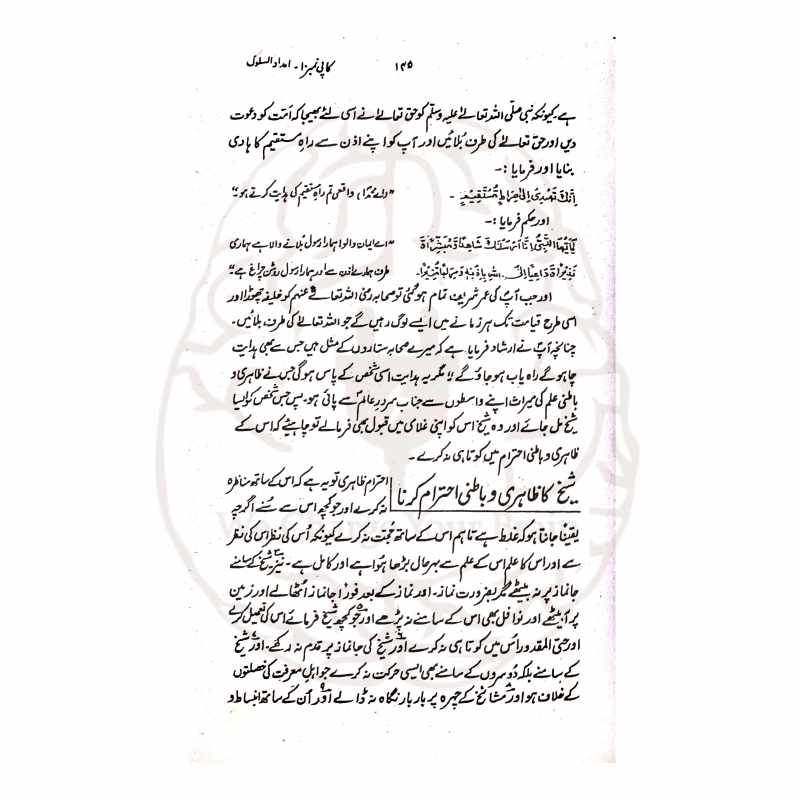 ۱۴۵ کاپی نمبر۱۰۔ امداد السلوک
ہے۔ کیونکہ نبی صلّی اللہ تعالےٰ علیہ وسلّم کو حق تعالےٰ نے اسی لئے بھیجا کہ اُمّت کو دعوت
دیں اور حق تعالےٰ کی طرف بُلائیں اور آپ کو اپنے اذن سے راہِ مستقیم کا ہادی
بنایا اور فرمایا :۔
اِنَّكَ تَهْدِىْ اِلىٰ صِرَاطٍ مُّسْتَقِيْمٍ ۔ "(اے محمّدؐ) واقعی تم راہِ مستقیم کی ہدایت کرتے ہو۔"
اور حکم فرمایا :۔
يٰۤاَيُّهَا النَّبِىُّ اِنَّا اَرْسَلْنٰكَ شَاهِدًا وَّمُبَشِّرًا وَّ "اے ایمان والو! ہمارا رسول بُلانے والا ہے ہماری
نَذِيْرًا وَّدَاعِيًا اِلَى اللهِ بِاِذْنِهٖ وَسِرَاجًا مُّنِيْرًا۔ طرف ہمارے اذن سے اور ہمارا رسول روشن چراغ ہے۔"
اور جب آپؐ کی عمر شریف تمام ہو گئی تو صحابہ رضی اللہ تعالےٰ عنہم کو خلیفہ چھوڑا اور
اسی طرح قیامت تک ہر زمانے میں ایسے لوگ رہیں گے جو اللہ تعالےٰ کی طرف بلائیں۔
چنانچہ آپؐ نے ارشاد فرمایا ہے کہ میرے صحابہ ستاروں کے مثل ہیں جس سے بھی ہدایت
چاہو گے راہ یاب ہو جاؤ گے۔ مگر یہ ہدایت اسی شخص کے پاس ہوگی جس نے ظاہری و
باطنی علم کی میراث اپنے واسطوں سے جناب سرورِ عالمؐ سے پائی ہو۔ پس جس شخص کو ایسا
شیخ مل جائے اور وہ شیخ اس کو اپنی غلامی میں قبول بھی فرمالے تو چاہیئے کہ اس کے
ظاہری و باطنی احترام میں کوتاہی نہ کرے۔
شیخ کا ظاہری و باطنی احترام کرنا احترام ظاہری تو یہ ہے کہ اس کے ساتھ مناظرہ
نہ کرے اور جو کچھ اس سے سُنے اگرچہ
یقینًا جانتا ہو کہ غلط ہے تاہم اس کے ساتھ حُجّت نہ کرے کیونکہ اُس کی نظر اس کی نظر
سے اور اس کا علم اس کے علم سے بہرحال بڑھا ہُوا ہے اور کامل ہے۔ نیز شیخ کے سامنے
جانماز پر نہ بیٹھے مگر بضرورت نماز۔ اور نماز کے بعد فورًا جانماز اُٹھالے اور زمین
پر آ بیٹھے اور نوافل بھی اس کے سامنے نہ پڑھے اور جو کچھ شیخ فرمائے اس کی تعمیل کرے
اور حتّی المقدور اُس میں کوتاہی نہ کرے اور شیخ کی جانماز پر قدم نہ رکھے۔ اور شیخ
کے سامنے بلکہ دُوسروں کے سامنے بھی ایسی حرکت نہ کرے جو اہلِ معرفت کی خصلتوں
کے خلاف ہو اور مشائخ کے چہرہ پر بار بار نگاہ نہ ڈالے اور اُن کے ساتھ انبساط و